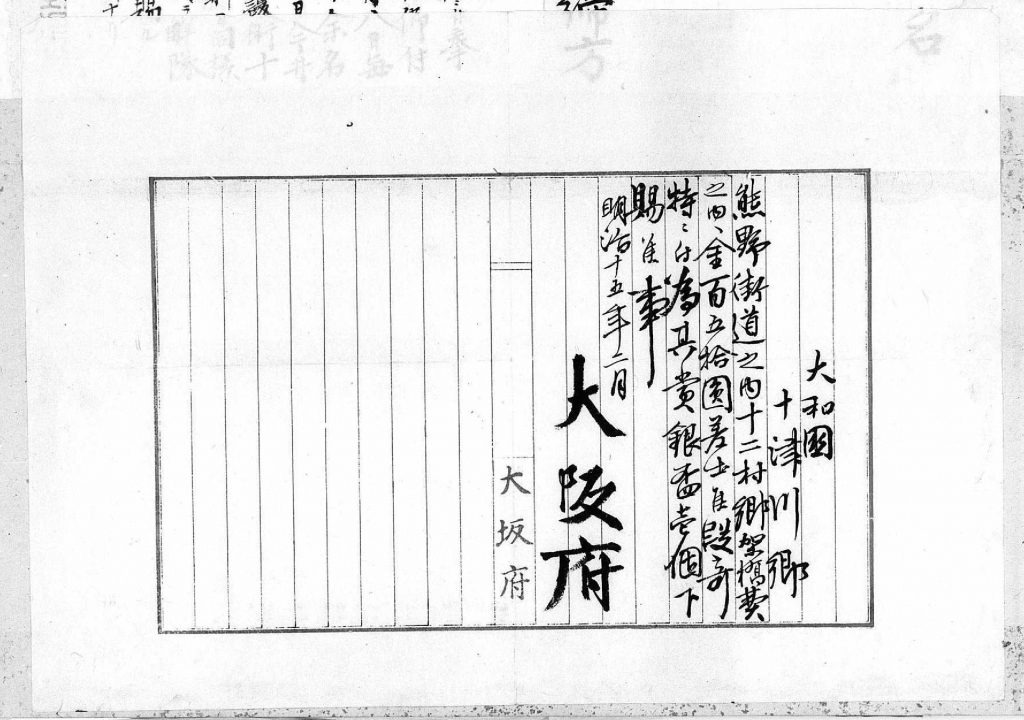 大和國
十津川郷
熊野街道之内十二村郷架橋費
之内ヘ金百五拾圓差出候段奇
特ニ付為其賞銀盃壱個下
賜候事
明治十五年二月
大阪府
大坂府